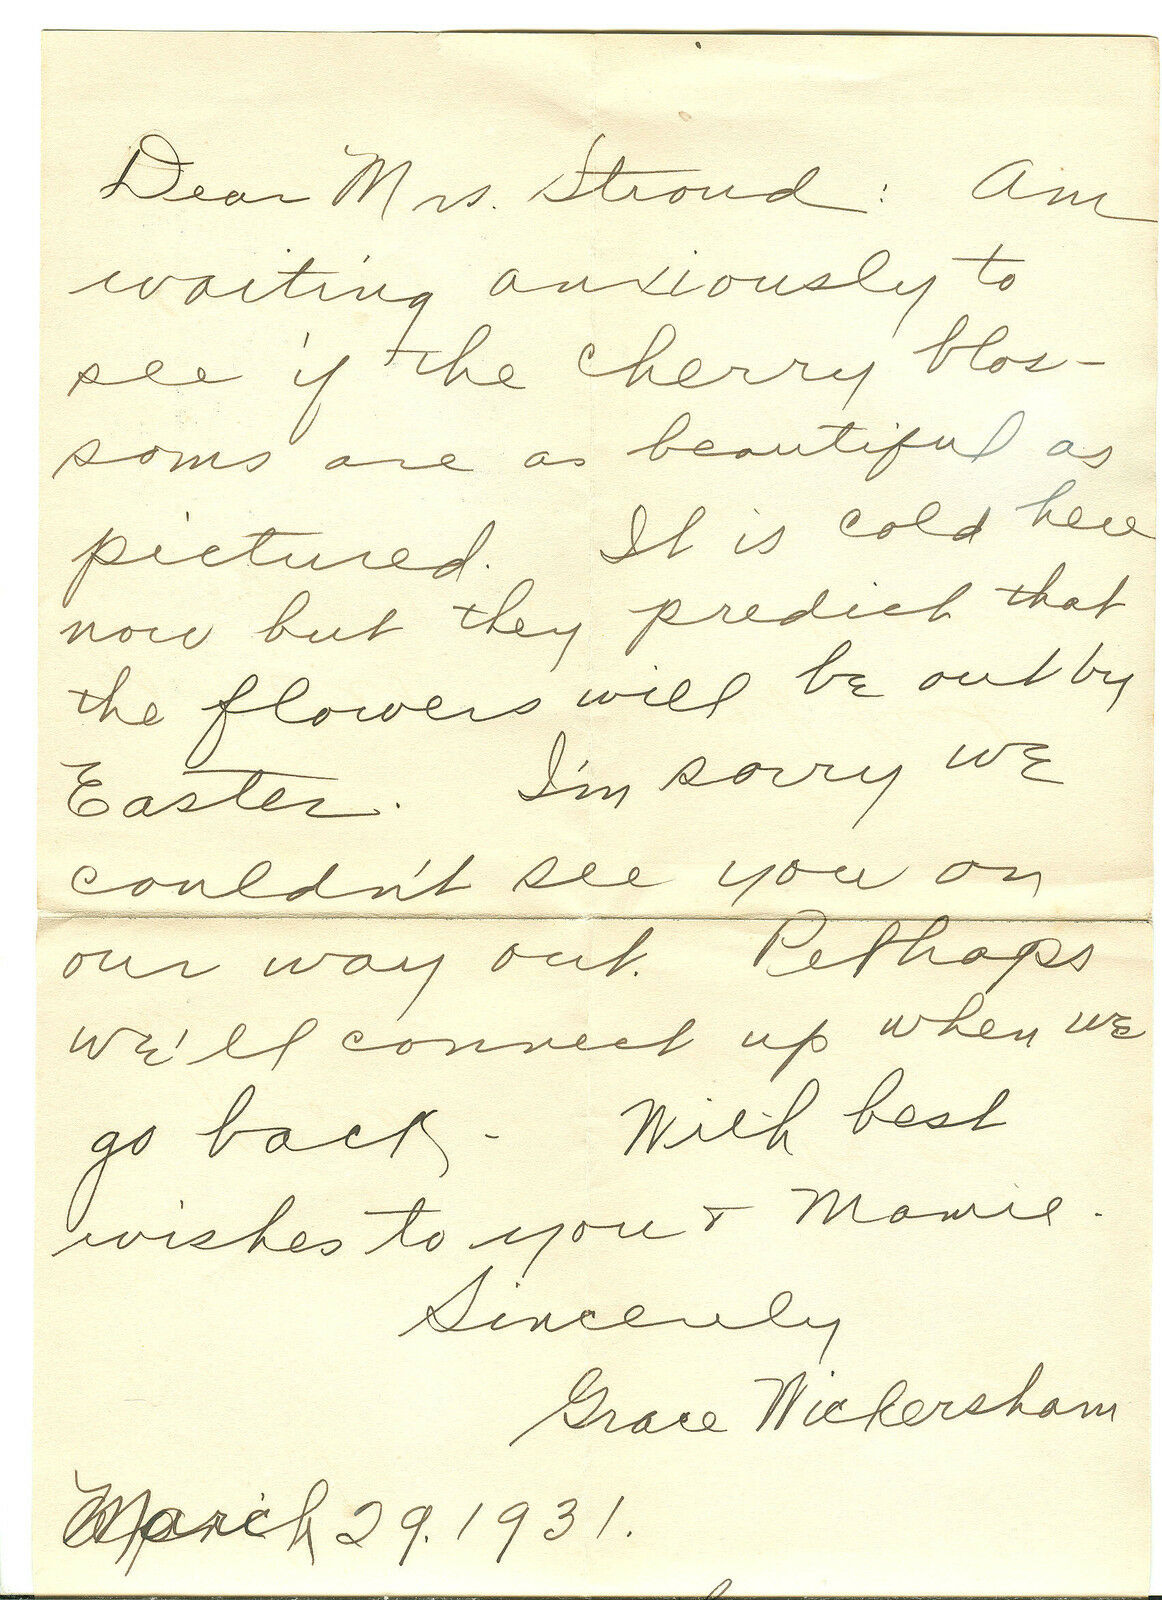 Dear Mrs. Stroud: Am
waiting anxiously to
see if the cherry blos-
soms are as beautiful as
pictured. It is cold here
now but they predict that
the flowers will be out by
Easter. I'm sorry we
couldn't see you on
our way out. Perhaps
we'll connect up when we
go back - With best
wishes to you & Mamie.
Sincerely
Grace Wickersham
March 29. 1931.